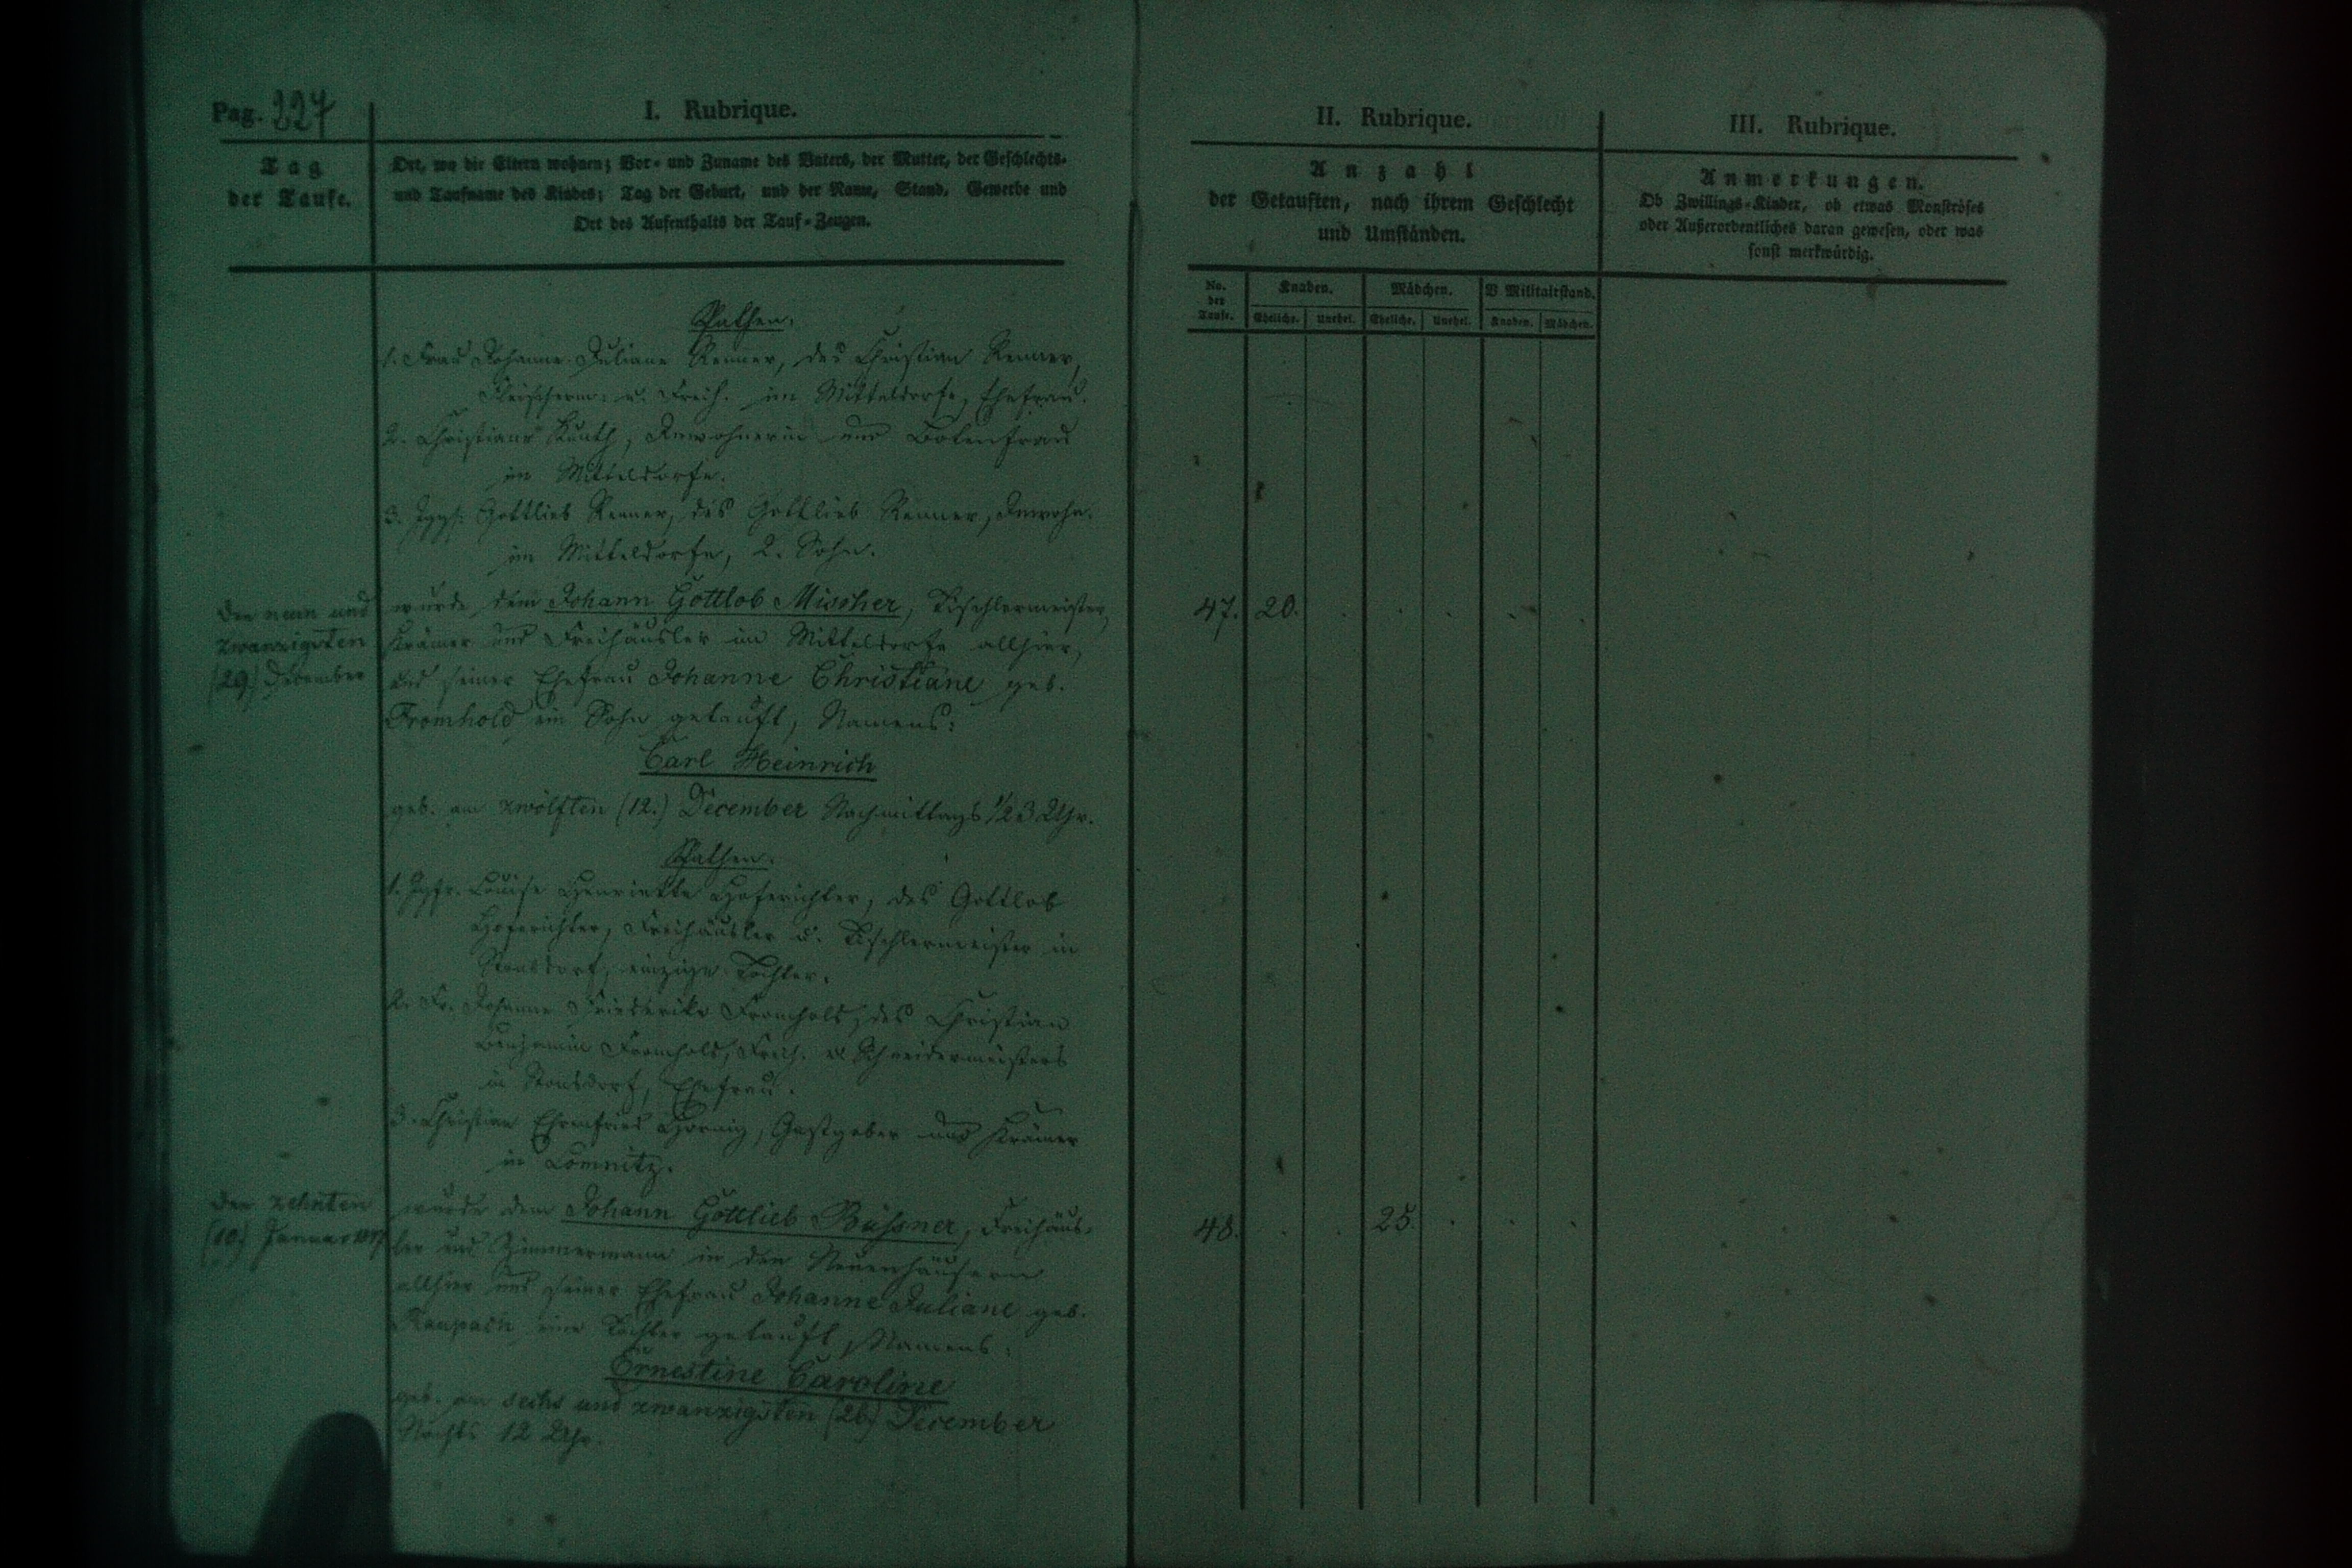 Pag. 227
I. Rubrique.
Tag
der Taufe.
Ort, wo die Eltern wohnen; Vor- und Zuname des Vaters, der Mutter, der Geschlechts-
und Taufname des Kindes; Tag der Geburt, und der Name, Stand, Gewerbe und
Ort des Aufenthalts der Tauf-Zeugen.
Pathen.
1. Frau Johanne Juliane Renner, des Christian Renner,
Fleischerm. u. Freih. im Mitteldorfe, Ehefrau.
2. Christiane Kunth, Inwohnerin und Botenfrau
im Mitteldorfe.
3. Jggs. Gottlieb Renner, des Gottlieb Renner, Inwohn.
im Mitteldorfe, 2. Sohn.
Den neun und
zwanzigsten
(29.) December
wurde dem Johann Gottlob Mischer, Tischlermeister,
Krämer und Freihäusler im Mitteldorfe allhier,
und seiner Ehefrau Johanne Christiane geb.
Fromhold ein Sohn getauft, Namens:
Carl Heinrich
geb. am zwölften (12.) December Nachmittags 1/2 3 Uhr.
Pathen.
1. Jgfr. Louise Henriette Hoferichter, des Gottlob
Hoferichter, Freihäusler u. Tischlermeister in
Stonsdorf, einzige Tochter.
2. Fr. Johanne Friederike Fromhold, des Christian
Benjamin Fromhold, Freih. u. Schneidermeisters
in Stonsdorf, Ehefrau.
3. Christian Ehrenfried Hornig, Gastgeber und Krämer
in Lomnitz.
Den zehnten
(10.) Januar
wurde dem Johann Gottlieb Büßner, Freihäus-
ler und Zimmermann in den Neuenhäusern
allhier und seiner Ehefrau Johanne Juliane geb.
Raupach eine Tochter getauft, Namens:
Ernestine Caroline
geb. am sechs und zwanzigsten (26.) December
Nachts 12 Uhr.
II. Rubrique.
Anzahl
der Getauften, nach ihrem Geschlecht
und Umständen.
No. der Taufe.
Knaben. Mädchen. V. Militairstand.
Eheliche. Unehel. Eheliche. Unehel. Knaben. Mädchen.
47. 20.
48. 25.
III. Rubrique.
Anmerkungen.
Ob Zwillings-Kinder, ob etwas Monströses
oder Außerordentliches daran gewesen, oder was
sonst merkwürdig.